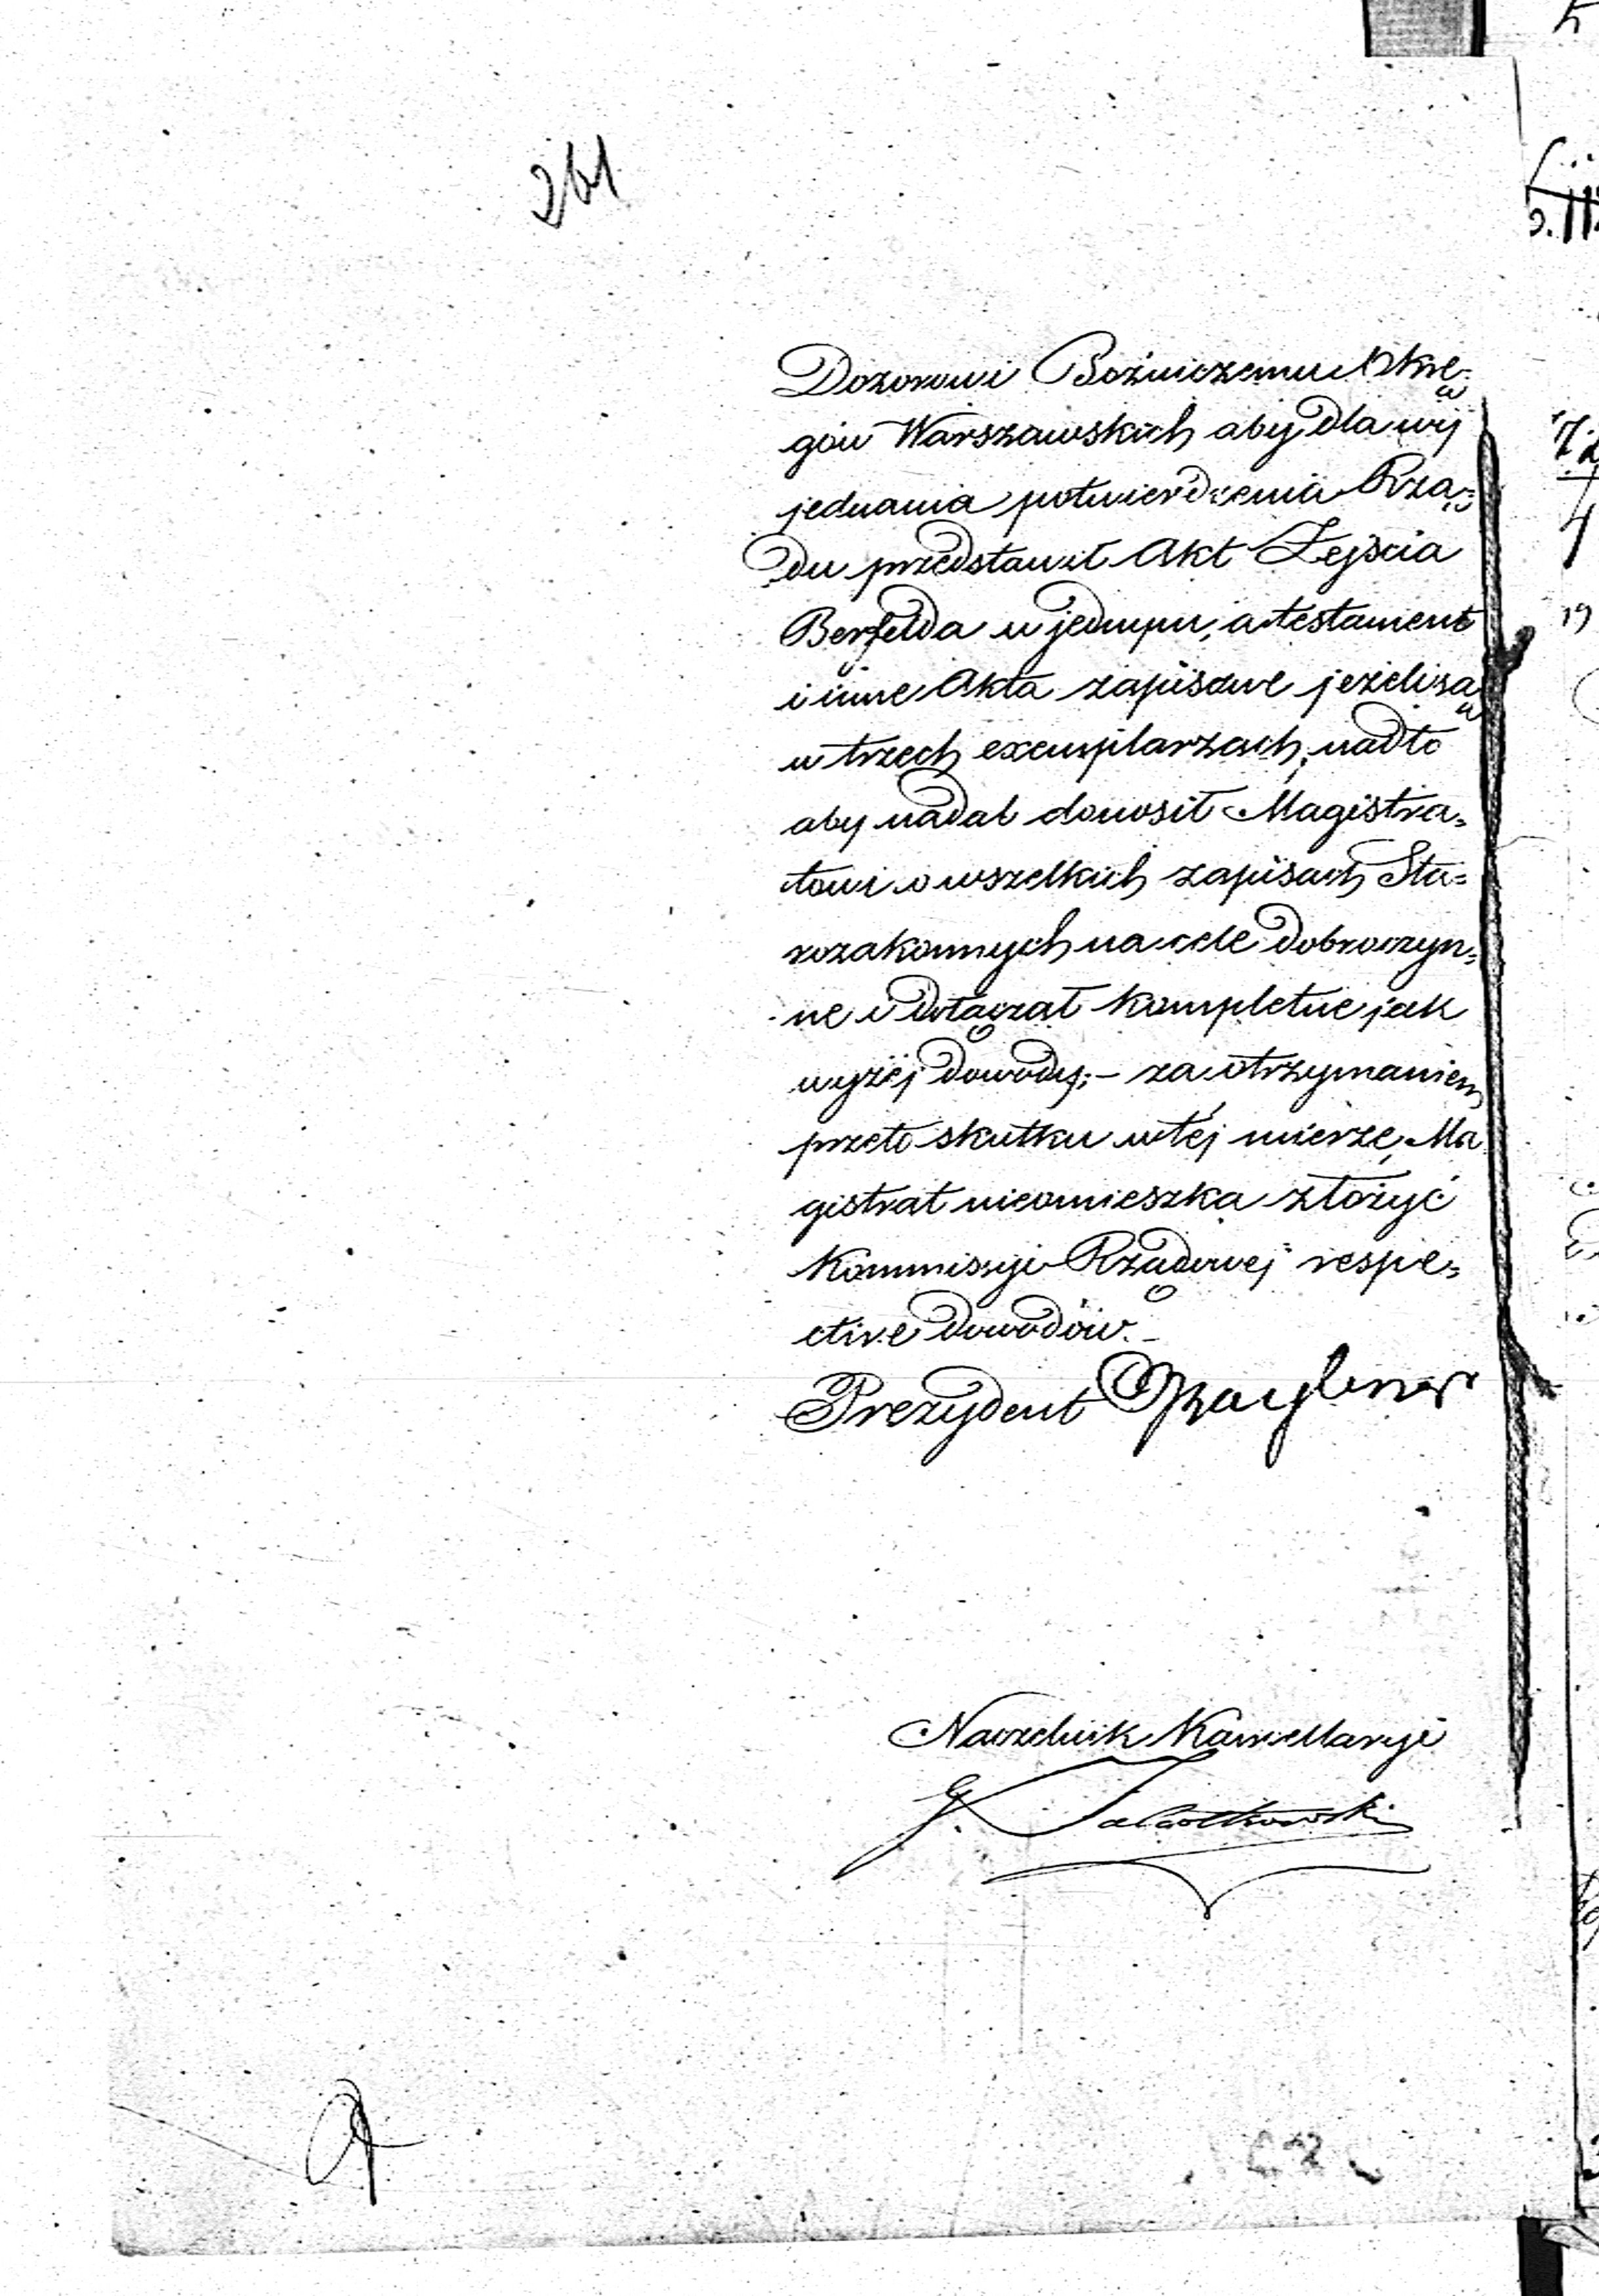 261
Dozorowi Bożniczemu Okrę-
gów Warszawskich aby dla wy
jednania potwierdzenia Rzą=
du przedstawił Akt Zejścia
Berfelda w jednym, a testament
i inne Akta zapisowe jeżeli są
w trzech exemplarzach, nadto
aby nadal donosił Magistra=
towi o wszelkich zapisach Sta=
rozakonnych na cele dobroczyn=
ne i dołączał kompletne jak
wyżej dowody; – za otrzymaniem
przeto skutku w téj mierze, Ma
gistrat nieomieszka złożyć
Kommissyi Rządowej respe=
ctive dowodów. –
Prezydent
Naczelnik Kancellaryi